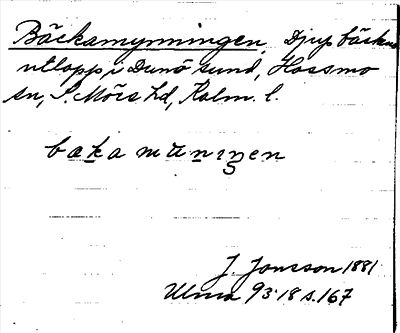 Bäckamynningen, Djup bäckens
utlopp i Dunö sund, Hossmo
sn, S. Möre hd, Kalm. l.
bæka mūniŋen
J. Jonsson 1881
Ulma 93:18 s. 167